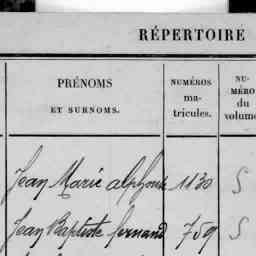 RÉPERTOIRE
PRÉNOMS
ET SURNOMS.
NUMÉROS
ma-
tricules.
NU-
MÉRO
du
volume
Jean Marie alphonse 1130 S
Jean Baptiste fernand 709 S